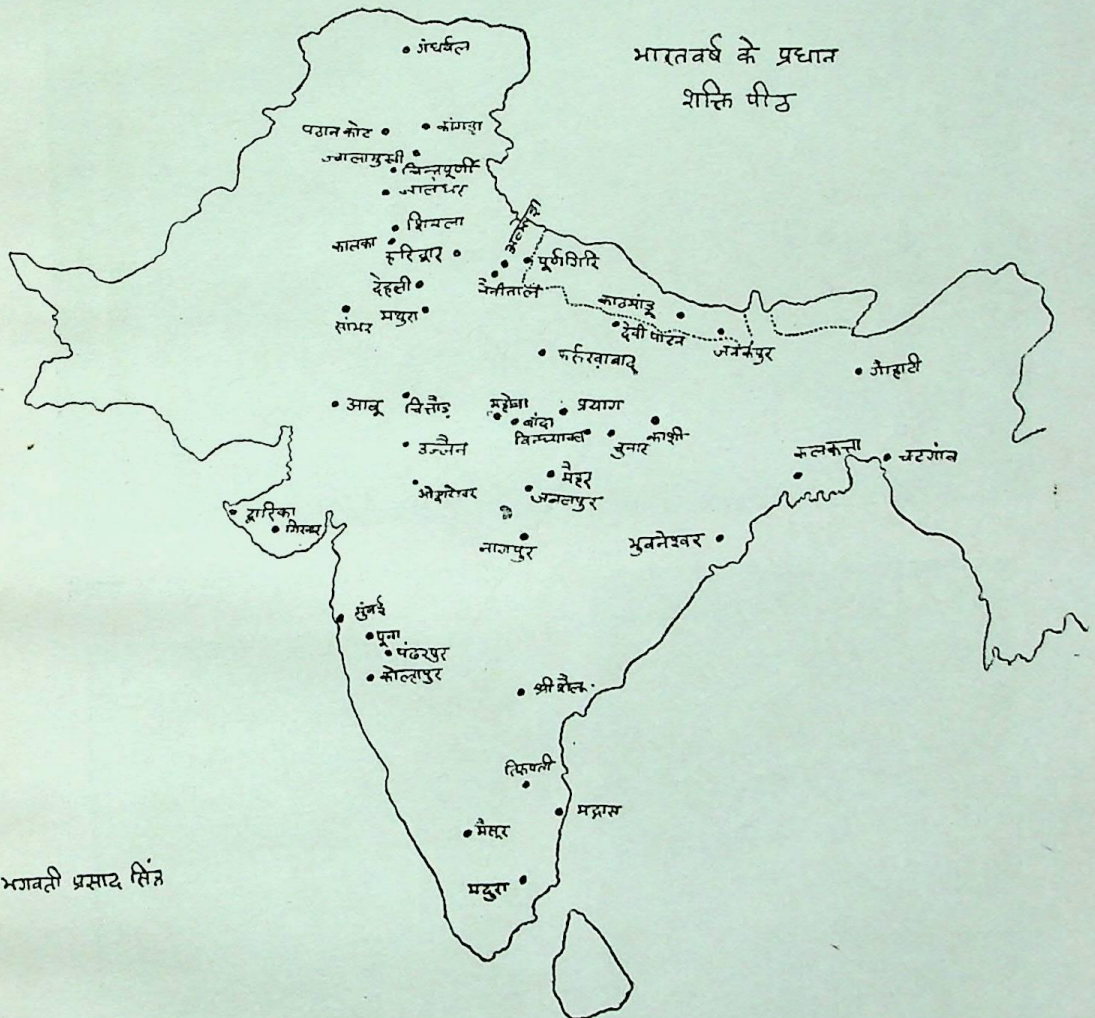 भारतवर्ष के प्रधान
शक्ति पीठ
गंधर्वल
पठान कोट
कांगड़ा
ज्वालामुखी
चिन्तपूर्णी
जालंधर
शिमला
कालका
हरिद्वार
पूर्णागिरि
नैनीताल
देहली
सांभर
मथुरा
काठमांडू
देवी पाटन
जनकपुर
फर्रुखाबाद
गौहाटी
आबू
चित्तौड़
महोबा
बांदा
प्रयाग
विन्ध्याचल
चुनार
काशी
उज्जैन
कलकत्ता
चटगांव
मैहर
जबलपुर
द्वारिका
गिरनार
नागपुर
भुवनेश्वर
मुंबई
पूना
पंढरपुर
कोल्हापुर
श्री शैल
तिरुपती
मद्रास
मैसूर
मदुरा
भगवती प्रसाद सिंह